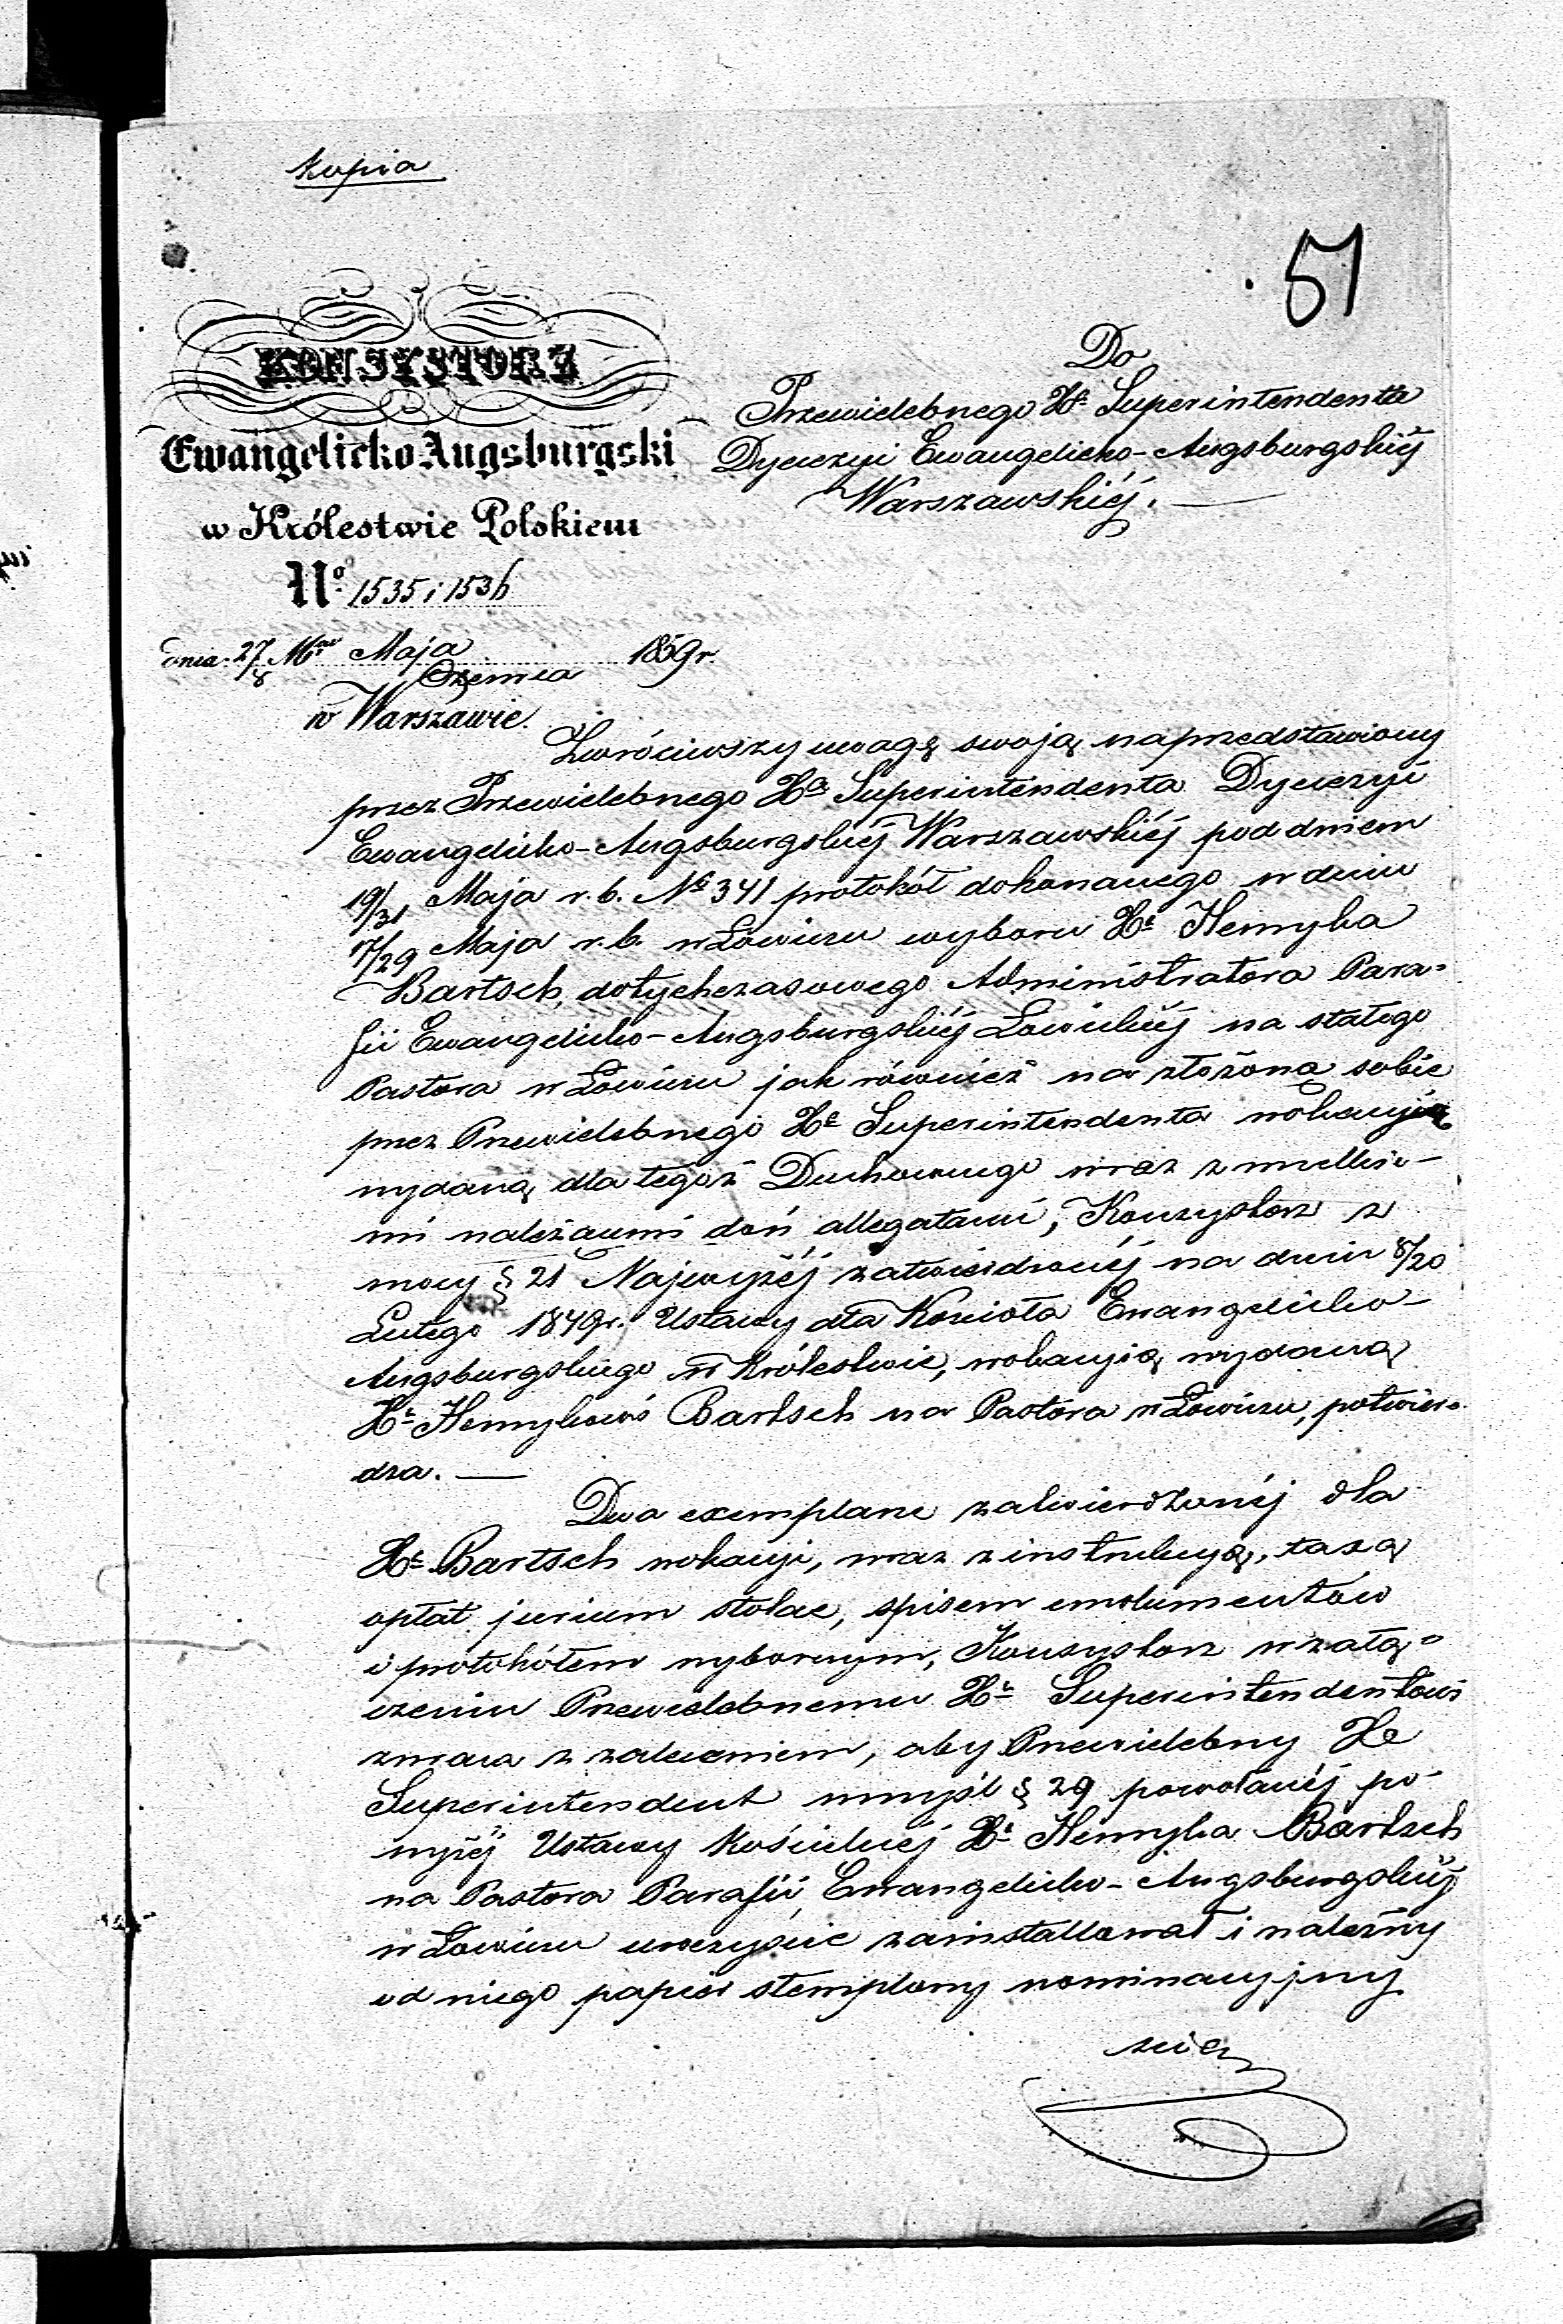 Kopia
51
KONSYSTORZ
Ewangelicko Augsburgski
w Królestwie Polskiem
No. 1535 i 1536
dnia 27/8 Maja
Czerwca 1859 r.
w Warszawie.
Do
Przewielebnego Xs. Superintendenta
Dyecezyi Ewangelicko-Augsburgskiéj
Warszawskiéj. —
Zwróciwszy uwagę swoją na przedstawiony
przez Przewielebnego Xa Superintendenta Dyecezyi
Ewangelicko-Augsburgskiéj Warszawskiéj pod dniem
19/31 Maja r. b. No 341 protokół dokonanego w dniu
17/29 Maja r. b. w Łowiczu wyboru Xs. Henryka
Bartsch, dotychczasowego Administratora Para=
fii Ewangelicko-Augsburgskiéj Łowickiéj na stałego
Pastora w Łowiczu jak również na złożoną sobie
przez Przewielebnego Xs. Superintendenta wokacyją
wydaną dla tegoż Duchownego wraz z wszelkie-
mi należącemi doń allegatami, Konsystorz z
mocy § 21 Najwyżéj zatwierdzonéj na dniu 8/20
Lutego 1849 r. Ustawy dla Kościoła Ewangelicko-
Augsburgskiego w Królestwie, wokacyją wydaną
Xs. Henrykowi Bartsch na Pastora w Łowiczu, potwier=
dza. —
Dwa exemplarze zatwierdzonéj dla
Xs. Bartsch wokacyi, wraz z instrukcyą, taxą
opłat jurium stolae, spisem emolumentów
i protokółem wyborczym, Konsystorz w załą=
czeniu Przewielebnemu Xs. Superintendentowi
zwraca z zaleceniem, aby Przewielebny Xs
Superintendent w myśl § 29 powołanéj po=
wyżéj Ustawy Kościelnéj Xs. Henryka Bartsch
na Pastora Parafii Ewangelicko-Augsburgskiéj
w Łowiczu uroczyście zainstallował i należny
od niego papier stemplowy nominacyjny